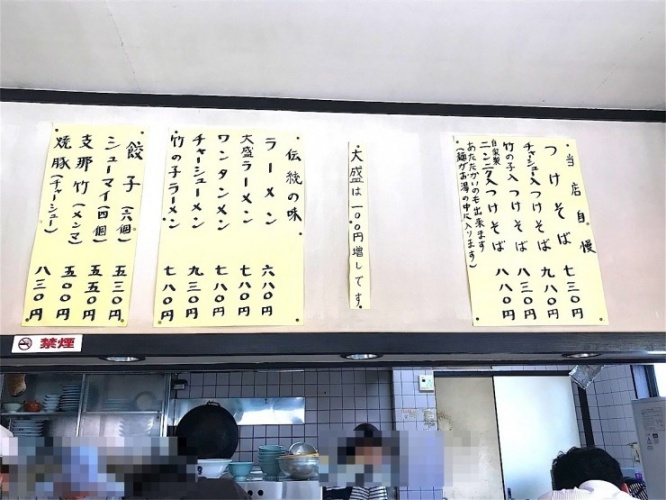 ・当店自慢・
つけそば 七三〇円
チャーシュー入つけそば 九八〇円
竹の子入つけそば 八三〇円
自家製ニンニク入つけそば 八八〇円
あたたかいのも出来ます
(麺がお湯の中に入ります)
大盛は一〇〇円増しです。
伝統の味
ラーメン 六八〇円
大盛ラーメン 七八〇円
ワンタンメン 七八〇円
チャーシューメン 九三〇円
竹の子ラーメン 七八〇円
餃子(六個) 五三〇円
シューマイ(四個) 五五〇円
支那竹(メンマ) 五〇〇円
焼豚(チャーシュー) 八三〇円
禁煙